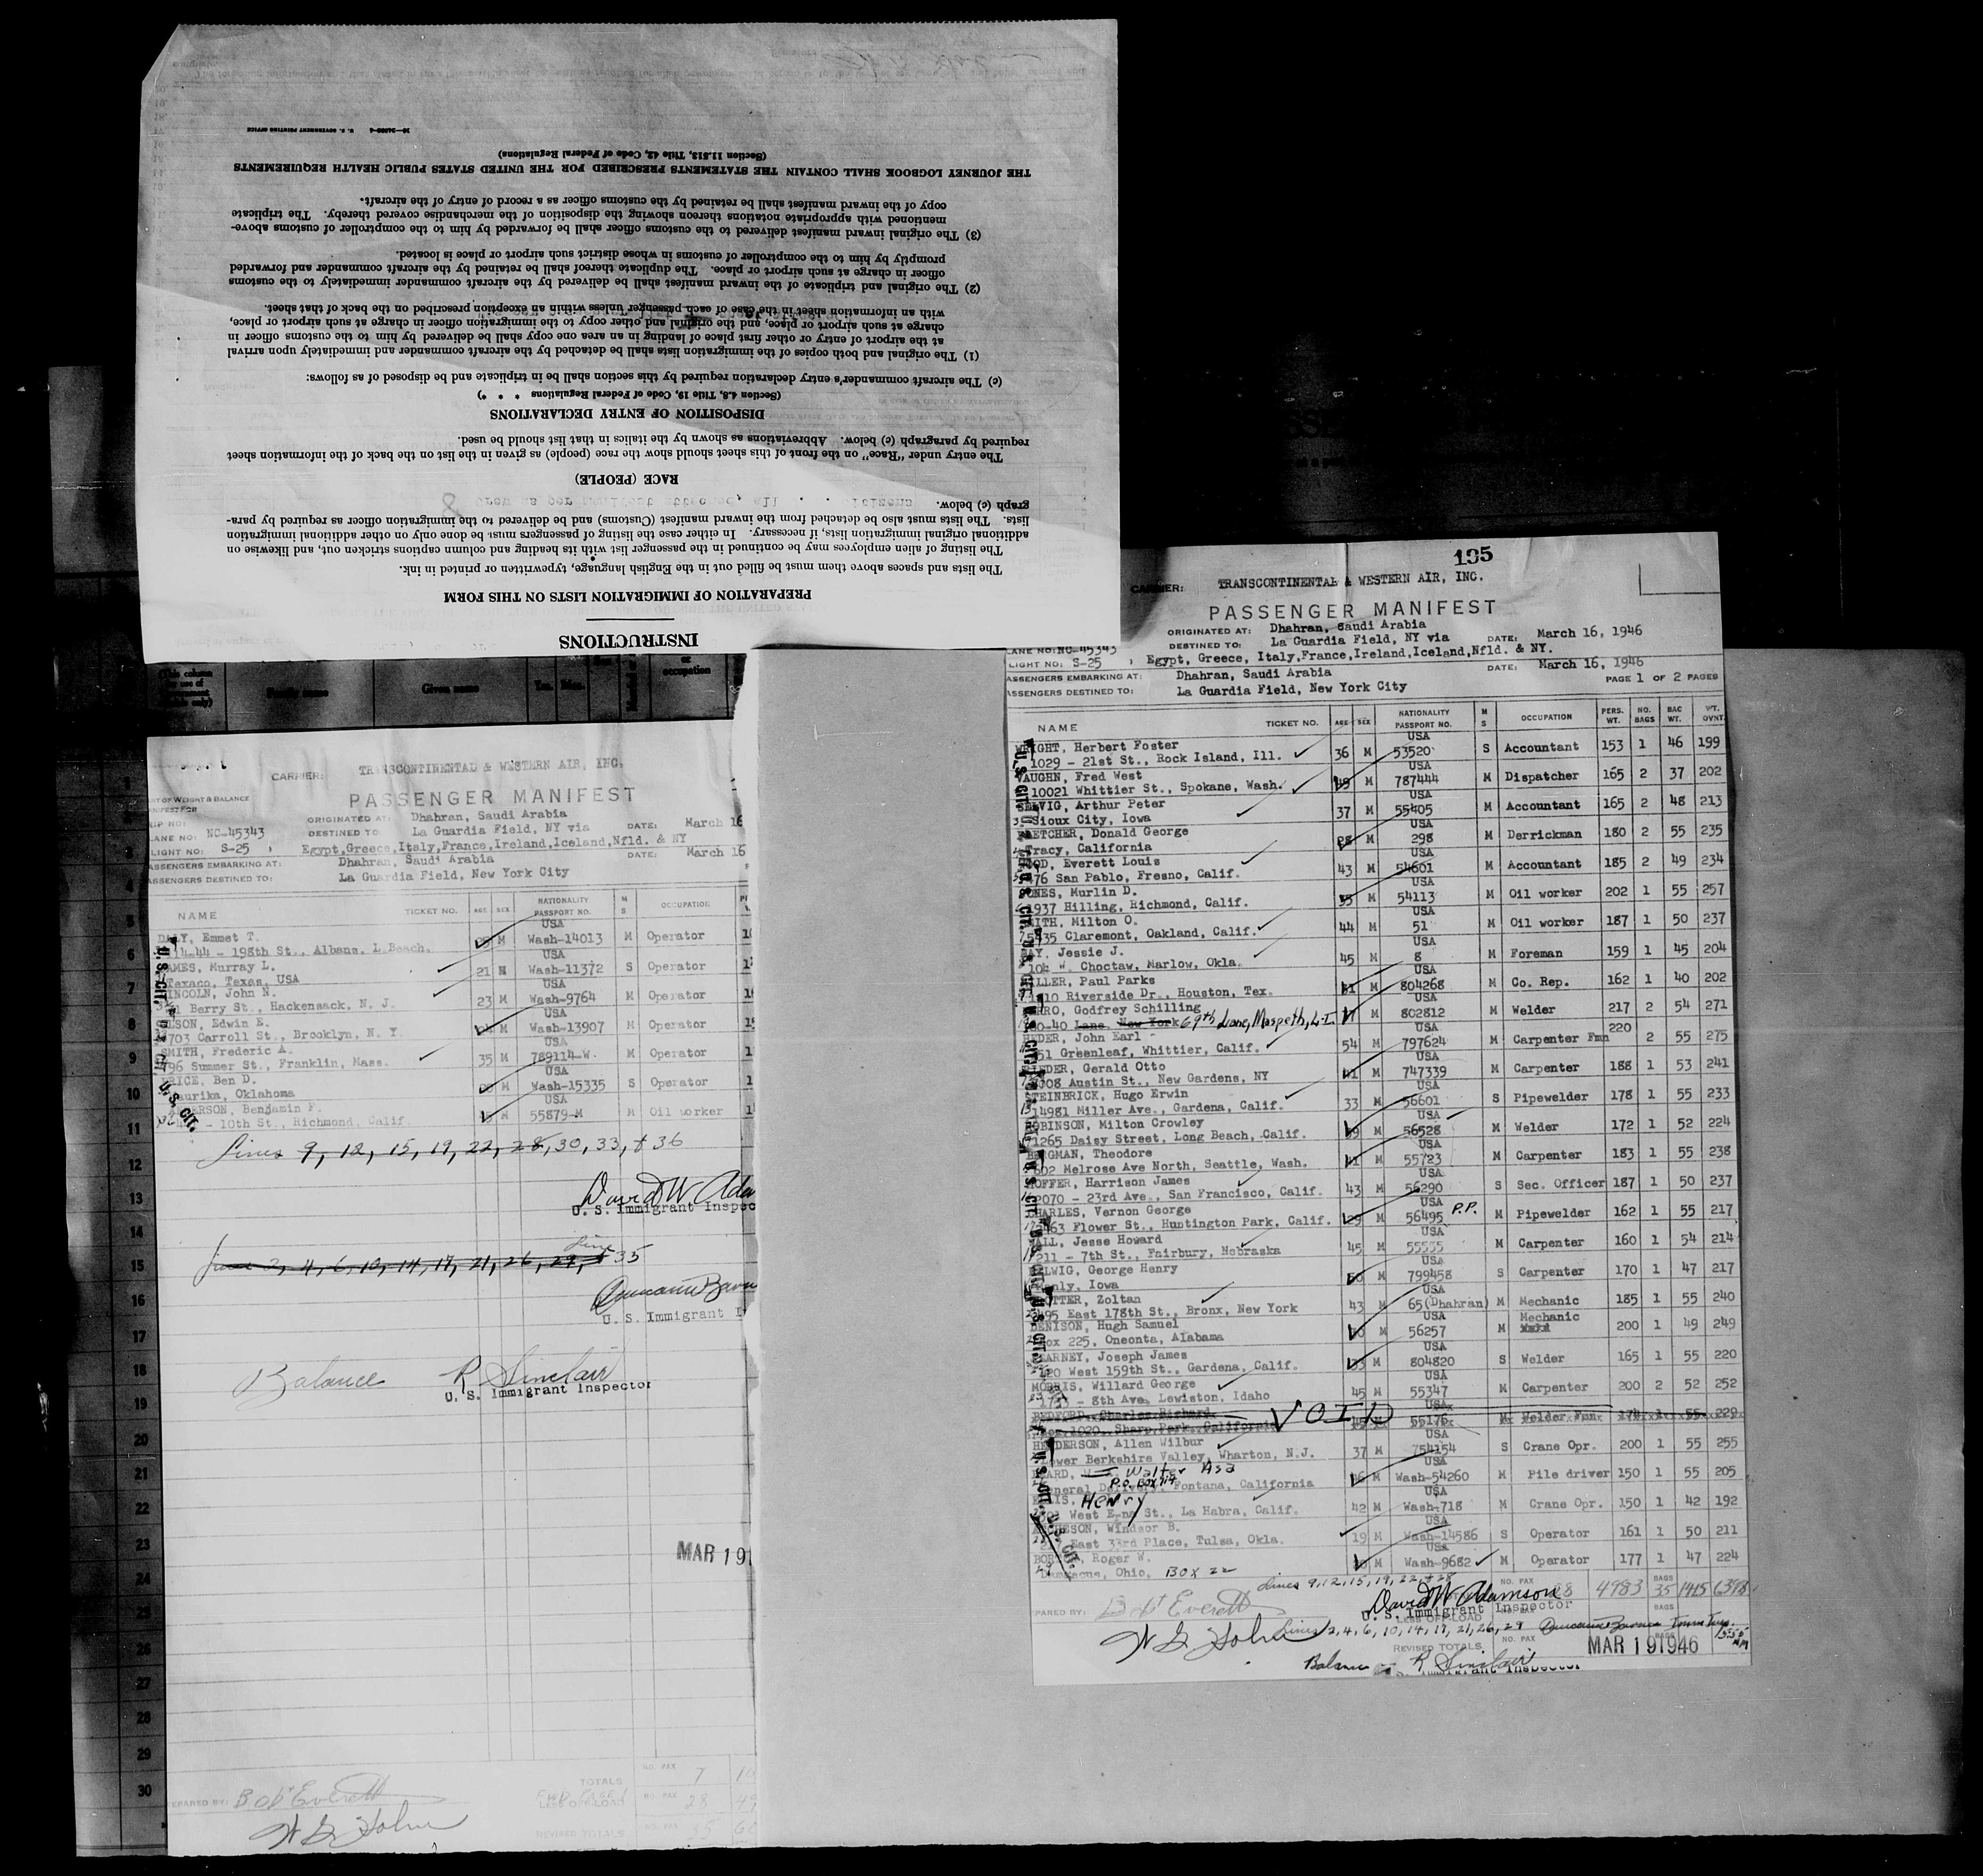 INSTRUCTIONS
PREPARATION OF IMMIGRATION LISTS ON THIS FORM
The lists and spaces above them must be filled out in the English language, typewritten or printed in ink.
The listing of alien employees may be continued in the passenger list with its heading and column captions stricken out, and likewise on
additional original immigration lists, if necessary. In either case the listing of passengers must be done only on other additional immigration
lists. The lists must also be detached from the inward manifest (Customs) and be delivered to the immigration officer as required by para-
graph (c) below.
RACE (PEOPLE)
The entry under "Race" on the front of this sheet should show the race (people) as given in the list on the back of the information sheet
required by paragraph (c) below. Abbreviations as shown by the italics in that list should be used.
DISPOSITION OF ENTRY DECLARATIONS
(Section 4.8, Title 19, Code of Federal Regulations * * *)
(c) The aircraft commander's entry declaration required by this section shall be in triplicate and be disposed of as follows:
(1) The original and both copies of the immigration lists shall be detached by the aircraft commander and immediately upon arrival
at the airport of entry or other first place of landing in an area one copy shall be delivered by him to the customs officer in
charge at such airport or place, and the original and other copy to the immigration officer in charge at such airport or place,
with an information sheet in the case of each passenger unless within an exception prescribed on the back of that sheet.
(2) The original and triplicate of the inward manifest shall be delivered by the aircraft commander immediately to the customs
officer in charge at such airport or place. The duplicate thereof shall be retained by the aircraft commander and forwarded
promptly by him to the comptroller of customs in whose district such airport or place is located.
(3) The original inward manifest delivered to the customs officer shall be forwarded by him to the comptroller of customs above-
mentioned with appropriate notations thereon showing the disposition of the merchandise covered thereby. The triplicate
copy of the inward manifest shall be retained by the customs officer as a record of entry of the aircraft.
THE JOURNEY LOGBOOK SHALL CONTAIN THE STATEMENTS PRESCRIBED FOR THE UNITED STATES PUBLIC HEALTH REQUIREMENTS
(Section 11.513, Title 42, Code of Federal Regulations)
U. S. GOVERNMENT PRINTING OFFICE
Family name Given name Yrs. Mos. or occupation
CARRIER: TRANSCONTINENTAL & WESTERN AIR, INC.
PASSENGER MANIFEST
ORIGINATED AT: Dhahran, Saudi Arabia
LANE NO: NC-45343 DESTINED TO La Guardia Field, NY via DATE: March 16
LIGHT NO: S-25 Egypt,Greece,Italy,France,Ireland,Iceland,Nfld. & NY
ASSENGERS EMBARKING AT: Dhahran, Saudi Arabia DATE: March 16
ASSENGERS DESTINED TO: La Guardia Field, New York City
NAME TICKET NO. AGE SEX NATIONALITY PASSPORT NO. M S OCCUPATION
DALY, Emmet T. USA
114-44 - 198th St., Albans, L.Beach. M Wash-14013 M Operator
AMES, Murray L. USA
Texaco, Texas, USA 21 M Wash-11372 S Operator
INCOLN, John N. USA
Berry St., Hackensack, N. J. 23 M Wash-9764 M Operator
LSON, Edwin E. USA
703 Carroll St., Brooklyn, N. Y. M Wash-13907 M Operator
SMITH, Frederic A. USA
96 Summer St., Franklin, Mass. 35 M 789114-W M Operator
RICE, Ben D. USA
aurika, Oklahoma M Wash-15335 S Operator
ERSON, Benjamin F. USA
- 10th St., Richmond, Calif M 55879-M M Oil worker
Lines 9, 12, 15, 19, 22, 28, 30, 33, + 36
David W. Ada
U. S. Immigrant Inspec
Line
Lines 2, 4, 6, 10, 14, 17, 21, 26, 29, + 35
U. S. Immigrant I
Balance R Sinclair
U. S. Immigrant Inspector
MAR 19
TOTALS NO. PAX 7
FWD PAGE 1
LESS OFF-LOAD NO. PAX 28
EPARED BY: Bob Everett
REVISED TOTALS NO. PAX 35
1
2
3
4
5
6
7
8
9
10
11
12
13
14
15
16
17
18
19
20
21
22
23
24
25
26
27
28
29
30
195
CARRIER: TRANSCONTINENTAL & WESTERN AIR, INC.
PASSENGER MANIFEST
ORIGINATED AT: Dhahran, Saudi Arabia
LANE NO: NC-45343 DESTINED TO: La Guardia Field, NY via DATE: March 16, 1946
LIGHT NO: S-25 Egypt, Greece, Italy,France,Ireland,Iceland,Nfld. & NY.
ASSENGERS EMBARKING AT: Dhahran, Saudi Arabia DATE: March 16, 1946
ASSENGERS DESTINED TO: La Guardia Field, New York City PAGE 1 OF 2 PAGES
NAME TICKET NO. AGE SEX NATIONALITY PASSPORT NO. M S OCCUPATION PERS. WT. NO. BAGS BAG WT. WT. OVNT.
WRIGHT, Herbert Foster USA
1029 - 21st St., Rock Island, Ill. 36 M 53520 S Accountant 153 1 46 199
VAUGHN, Fred West USA
10021 Whittier St., Spokane, Wash. 49 M 787444 M Dispatcher 165 2 37 202
SELVIG, Arthur Peter USA
Sioux City, Iowa 37 M 55405 M Accountant 165 2 48 213
FLETCHER, Donald George USA
Tracy, California 28 M 298 M Derrickman 180 2 55 235
OOD, Everett Louis USA
76 San Pablo, Fresno, Calif. 43 M 54601 M Accountant 185 2 49 234
ONES, Murlin D. USA
1937 Hilling, Richmond, Calif. 35 M 54113 M Oil worker 202 1 55 257
MITH, Milton O. USA
5435 Claremont, Oakland, Calif. 44 M 51 M Oil worker 187 1 50 237
AY, Jessie J. USA
104 W. Choctaw, Marlow, Okla. 45 M 8 M Foreman 159 1 45 204
ILLER, Paul Parks USA
1810 Riverside Dr., Houston, Tex. M 804268 M Co. Rep. 162 1 40 202
ERRO, Godfrey Schilling USA
60-40 Lane, New York 69th Lane, Maspeth, L.I. M 802812 M Welder 217 2 54 271
EDER, John Earl USA
51 Greenleaf, Whittier, Calif. 54 M 797624 M Carpenter Fmn 220 2 55 275
RIEDER, Gerald Otto USA
8308 Austin St., New Gardens, NY 41 M 747339 M Carpenter 188 1 53 241
STEINBRICK, Hugo Erwin USA
14981 Miller Ave., Gardena, Calif. 33 M 56601 S Pipewelder 178 1 55 233
ROBINSON, Milton Crowley USA
1265 Daisy Street, Long Beach, Calif. M 56528 M Welder 172 1 52 224
BERGMAN, Theodore USA
602 Melrose Ave North, Seattle, Wash. 41 M 55723 M Carpenter 183 1 55 238
HOFFER, Harrison James USA
2070 - 23rd Ave., San Francisco, Calif. 43 M 56290 S Sec. Officer 187 1 50 237
CHARLES, Vernon George USA
2463 Flower St., Huntington Park, Calif. 29 M 56495 P.P. M Pipewelder 162 1 55 217
HALL, Jesse Howard USA
211 - 7th St., Fairbury, Nebraska 45 M 55555 M Carpenter 160 1 54 214
ELWIG, George Henry USA
Manly, Iowa M 799458 S Carpenter 170 1 47 217
OTTER, Zoltan USA
495 East 178th St., Bronx, New York 43 M 65(Dhahran) M Mechanic 185 1 55 240
DENISON, Hugh Samuel USA Mechanic
Box 225, Oneonta, Alabama M 56257 M 200 1 49 249
KEARNEY, Joseph James USA
120 West 159th St., Gardena, Calif. M 804820 S Welder 165 1 55 220
MORRIS, Willard George USA
1733 - 8th Ave, Lewiston, Idaho 45 M 55347 M Carpenter 200 2 52 252
BEDFORD, Charles Richard USA
1020, Sharp Park, California VOID 45 M 55176 M Welder Fmn 174 1 55 229
HENDERSON, Allen Wilbur USA
Lower Berkshire Valley, Wharton, N.J. 37 M 754154 S Crane Opr. 200 1 55 255
EARD, Walter Asa USA
P.O. Box 714
General Delivery, Fontana, California M Wash-54260 M Pile driver 150 1 55 205
ELLIS, Henry USA
West St., La Habra, Calif. 42 M Wash-718 M Crane Opr. 150 1 42 192
ESON, Windsor B. USA
East 33rd Place, Tulsa, Okla. 19 M Wash-14586 S Operator 161 1 50 211
Roger W. USA
Damascus, Ohio, Box 22 M Wash-9682 M Operator 177 1 47 224
Lines 9,12,15,19,22,+28 NO. PAX 28 4983 BAGS 35 1415 6398
PARED BY: Bob Everett David W Adamson
U. S. Immigrant Inspector
LESS OFF-LOAD BAGS
Lines 2, 4, 6, 10, 14, 17, 21, 26, 29
REVISED TOTALS NO. PAX MAR 19 1946
Balance R Sinclair
U. S. Immigrant Inspector